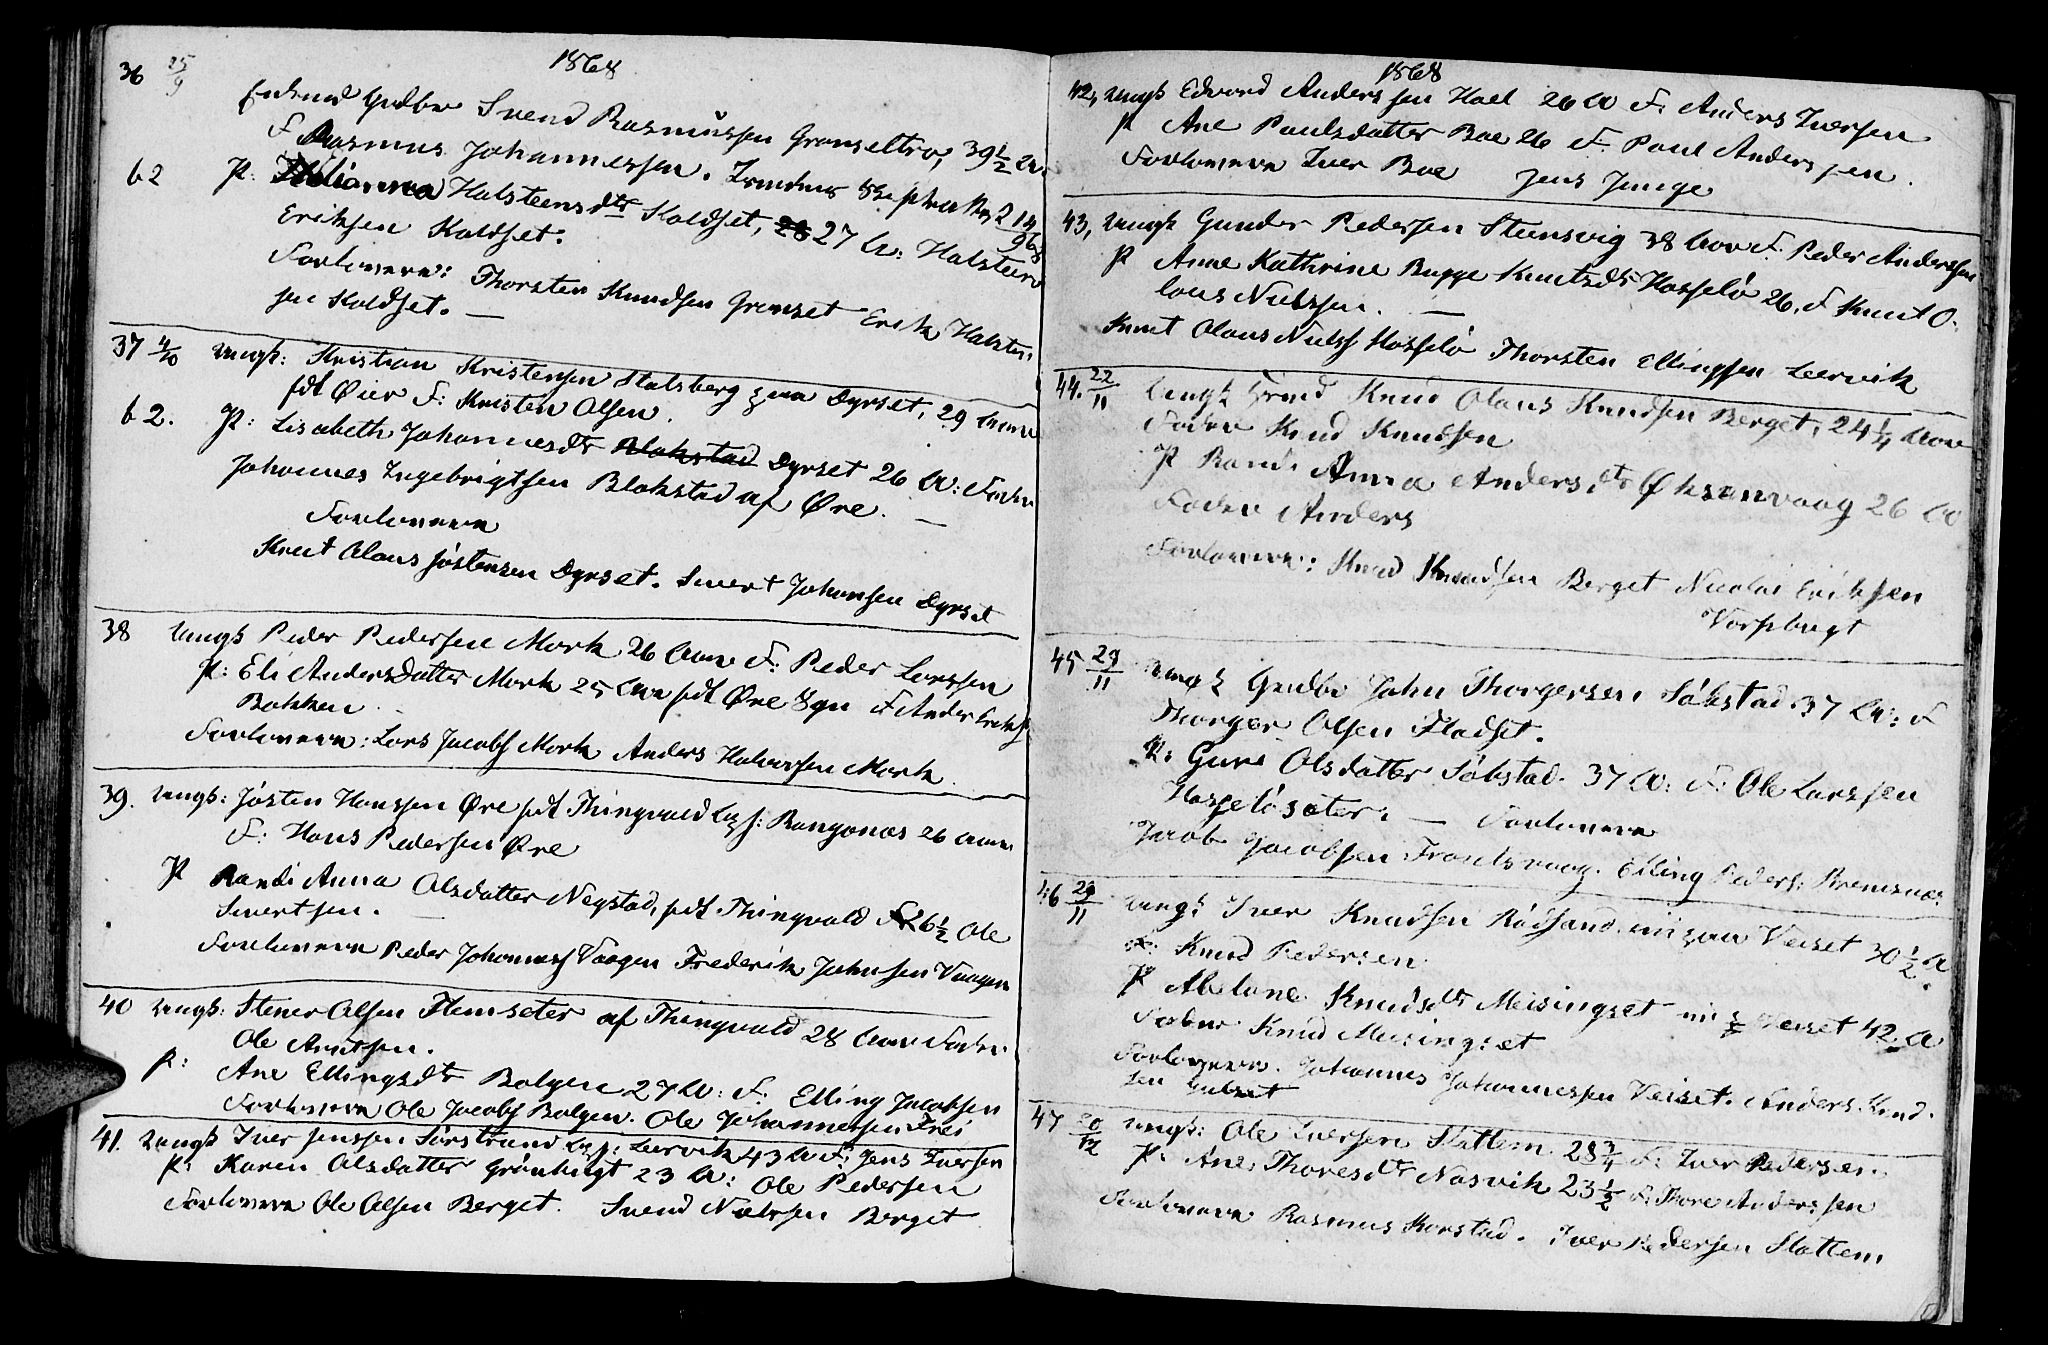 1868
36 25/9
Enkemd Gudbr Svend Rasmussen Gronseltrø, 39½ A.
F. Rasmus Johannessen.
62 P: Halsteensdtr Koldset, 27 A: Halsteen
Eriksen Koldset.
Forlovere: Thorsten Knudsen Gremset Erik Halsten
sen Koldset. —
37 4/10 Ungk: Kristian Kristensen Stalsberg Dyrset, 29 Aar
fdt Øier F: Kristen Olsen.
62. P: Lisabeth Johannesdtr Blakstad Dyrset 26 A: Fader
Johannes Ingebrigtsen Blakstad af Øre. —
Forlovere
Knut Olaus Jøstensen Dyrset. Sivert Johansen Dyrset
38 Ungk Peder Pedersen Mork 26 Aar F: Peder Larssen
P: Eli Andersdatter Mork 25 Aar fdt Øre Sgn F. Ander Eriks
Bakken.
Forlovere: Lars Jacobs Mork Anders Halvorsen Mork.
39. Ungk: Jøsten Hanssen Øre fdt Thingvold Rangønæs 26 Aar
F: Hans Pedersen Øre
P Randi Anna Olsdatter Negstad, fdt Thingvold 26½ Ole
Sivertsen. —
Forlovere Peder Johanness Vaagen Frederik Johnsen Vaagen
40 Ungk: Stener Olsen Flemseter af Thingvold 28 Aar Fader
Ole Arntsen.
P: Ane Ellingsdtr Bolgen 27 A: F. Elling Jacobsen
Forlovere Ole Jacobs Bolgen. Ole Johannessen Frei
41. Ungk Iver Jenssen Sørstrand Leervik 43 A F: Jens Iversen
P: Karen Olsdatter Grønbugt 23 A: Ole Pedersen
Forlovere Ole Olsen Berget. Svend Nielssen Berget
1868
42, Ungk Edvard Anderssen Hoel 26 A F. Anders Iversen
P Ane Paulsdatter Boe 26 F. Paul Anderssen.
Forlovere Iver Boe Jens Junge
43, Ungk Gunder Pedersen Steensvig 38 Aar F. Peder Anderssen
P Anne Kathrine Bugge Knutsdtr Hasselø 26. F Knut O-
laus Nielssen. —
Knut Olaus Niels Hasselø Thorsten Ellingsen Leervik
44. 22/11 Ungk Knud Olaus Knudsen Berget, 24¼ Aar
Fader Knud Knudsen
P Randi Anna Andersdtr Øksenvaag 26 A
Fader Anders
Forlovere: Knud Knudsen Berget Nicolai Eriksen
Vorpbugt
45 29/11 Ungk Gudbr John Thorgersen Søbstad. 37 A: F
Thorger Olsen Fladset.
P: Guri Olsdatter Søbstad. 37 A: F: Ole Larssen
Hasseløsæter. — Forlovere
Jacob Jacobsen Frantsvaag. Elling Peders: Bremsnæs
46 29/11 Ungk Iver Knudsen Rødsand Veiset 30½ A
F: Knud Pedersen
P Abelone Knudsdtr Meisingset Veiset 42. A
Fader Knud Meisingset
Forlovere. Johannes Johannessen Veiset. Anders Knud-
sen Gulset
47 20/12 Ungk: Ole Iversen Slatlem 28¾ F: Iver Pedersen
P. Ane Thoresdtr Nasvik 23½ F: Thore Anderssen
Forlovere Rasmus Korstad. Iver Pedersen Slatlem.